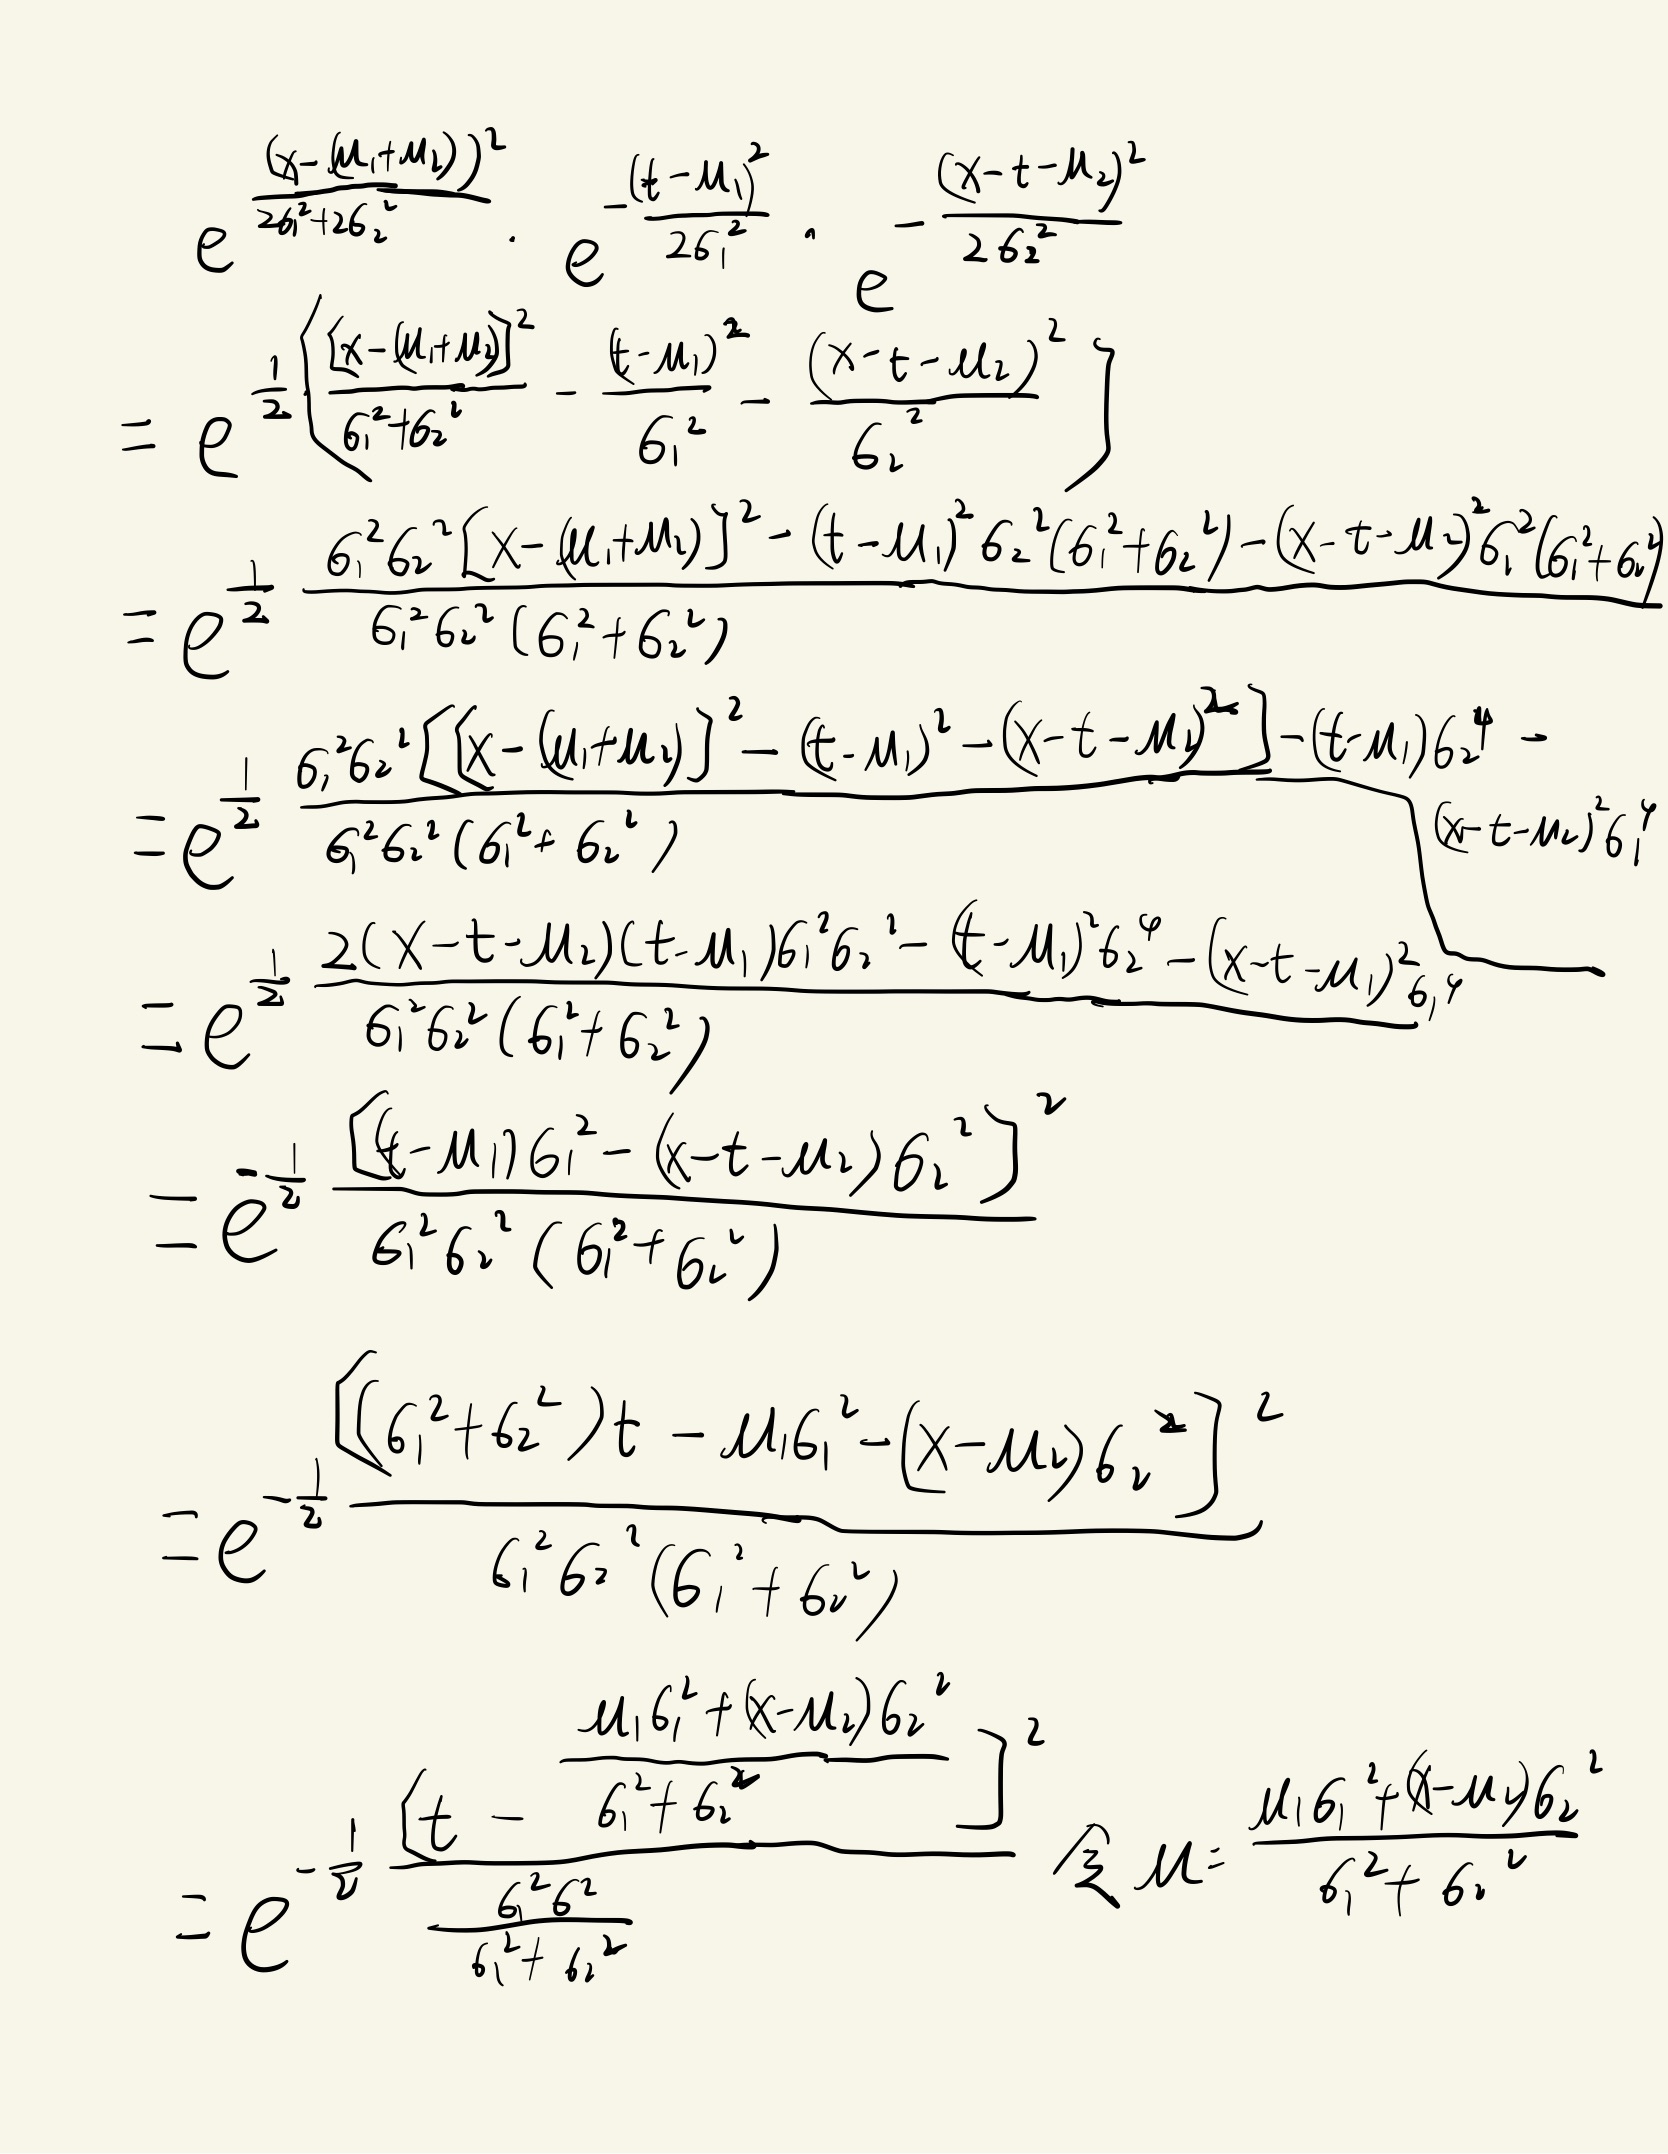 $e^{\frac{(x-(\mu_1+\mu_2))^2}{2\sigma_1^2+2\sigma_2^2}} \cdot e^{-\frac{(t-\mu_1)^2}{2\sigma_1^2}} \cdot e^{-\frac{(x-t-\mu_2)^2}{2\sigma_2^2}}$
$= e^{\frac{1}{2}\left[\frac{[x-(\mu_1+\mu_2)]^2}{\sigma_1^2+\sigma_2^2} - \frac{(t-\mu_1)^2}{\sigma_1^2} - \frac{(x-t-\mu_2)^2}{\sigma_2^2}\right]}$
$= e^{\frac{1}{2}\frac{\sigma_1^2\sigma_2^2[x-(\mu_1+\mu_2)]^2-(t-\mu_1)^2\sigma_2^2(\sigma_1^2+\sigma_2^2)-(x-t-\mu_2)^2\sigma_1^2(\sigma_1^2+\sigma_2^2)}{\sigma_1^2\sigma_2^2(\sigma_1^2+\sigma_2^2)}}$
$= e^{\frac{1}{2}\frac{\sigma_1^2\sigma_2^2[[x-(\mu_1+\mu_2)]^2-(t-\mu_1)^2-(x-t-\mu_2)^2]-(t-\mu_1)\sigma_2^4-(x-t-\mu_2)^2\sigma_1^4}{\sigma_1^2\sigma_2^2(\sigma_1^2+\sigma_2^2)}}$
$= e^{\frac{1}{2}\frac{2(x-t-\mu_2)(t-\mu_1)\sigma_1^2\sigma_2^2-(t-\mu_1)^2\sigma_2^4-(x-t-\mu_1)^2\sigma_1^4}{\sigma_1^2\sigma_2^2(\sigma_1^2+\sigma_2^2)}}$
$= e^{-\frac{1}{2}\frac{[(t-\mu_1)\sigma_1^2-(x-t-\mu_2)\sigma_2^2]^2}{\sigma_1^2\sigma_2^2(\sigma_1^2+\sigma_2^2)}}$
$= e^{-\frac{1}{2}\frac{[(\sigma_1^2+\sigma_2^2)t-\mu_1\sigma_1^2-(x-\mu_2)\sigma_2^2]^2}{\sigma_1^2\sigma_2^2(\sigma_1^2+\sigma_2^2)}}$
$= e^{-\frac{1}{2}\frac{\left[t-\frac{\mu_1\sigma_1^2+(x-\mu_2)\sigma_2^2}{\sigma_1^2+\sigma_2^2}\right]^2}{\frac{\sigma_1^2\sigma^2}{\sigma_1^2+\sigma_2^2}}}$ 令 $\mu=\frac{\mu_1\sigma_1^2+(x-\mu_2)\sigma_2^2}{\sigma_1^2+\sigma_2^2}$